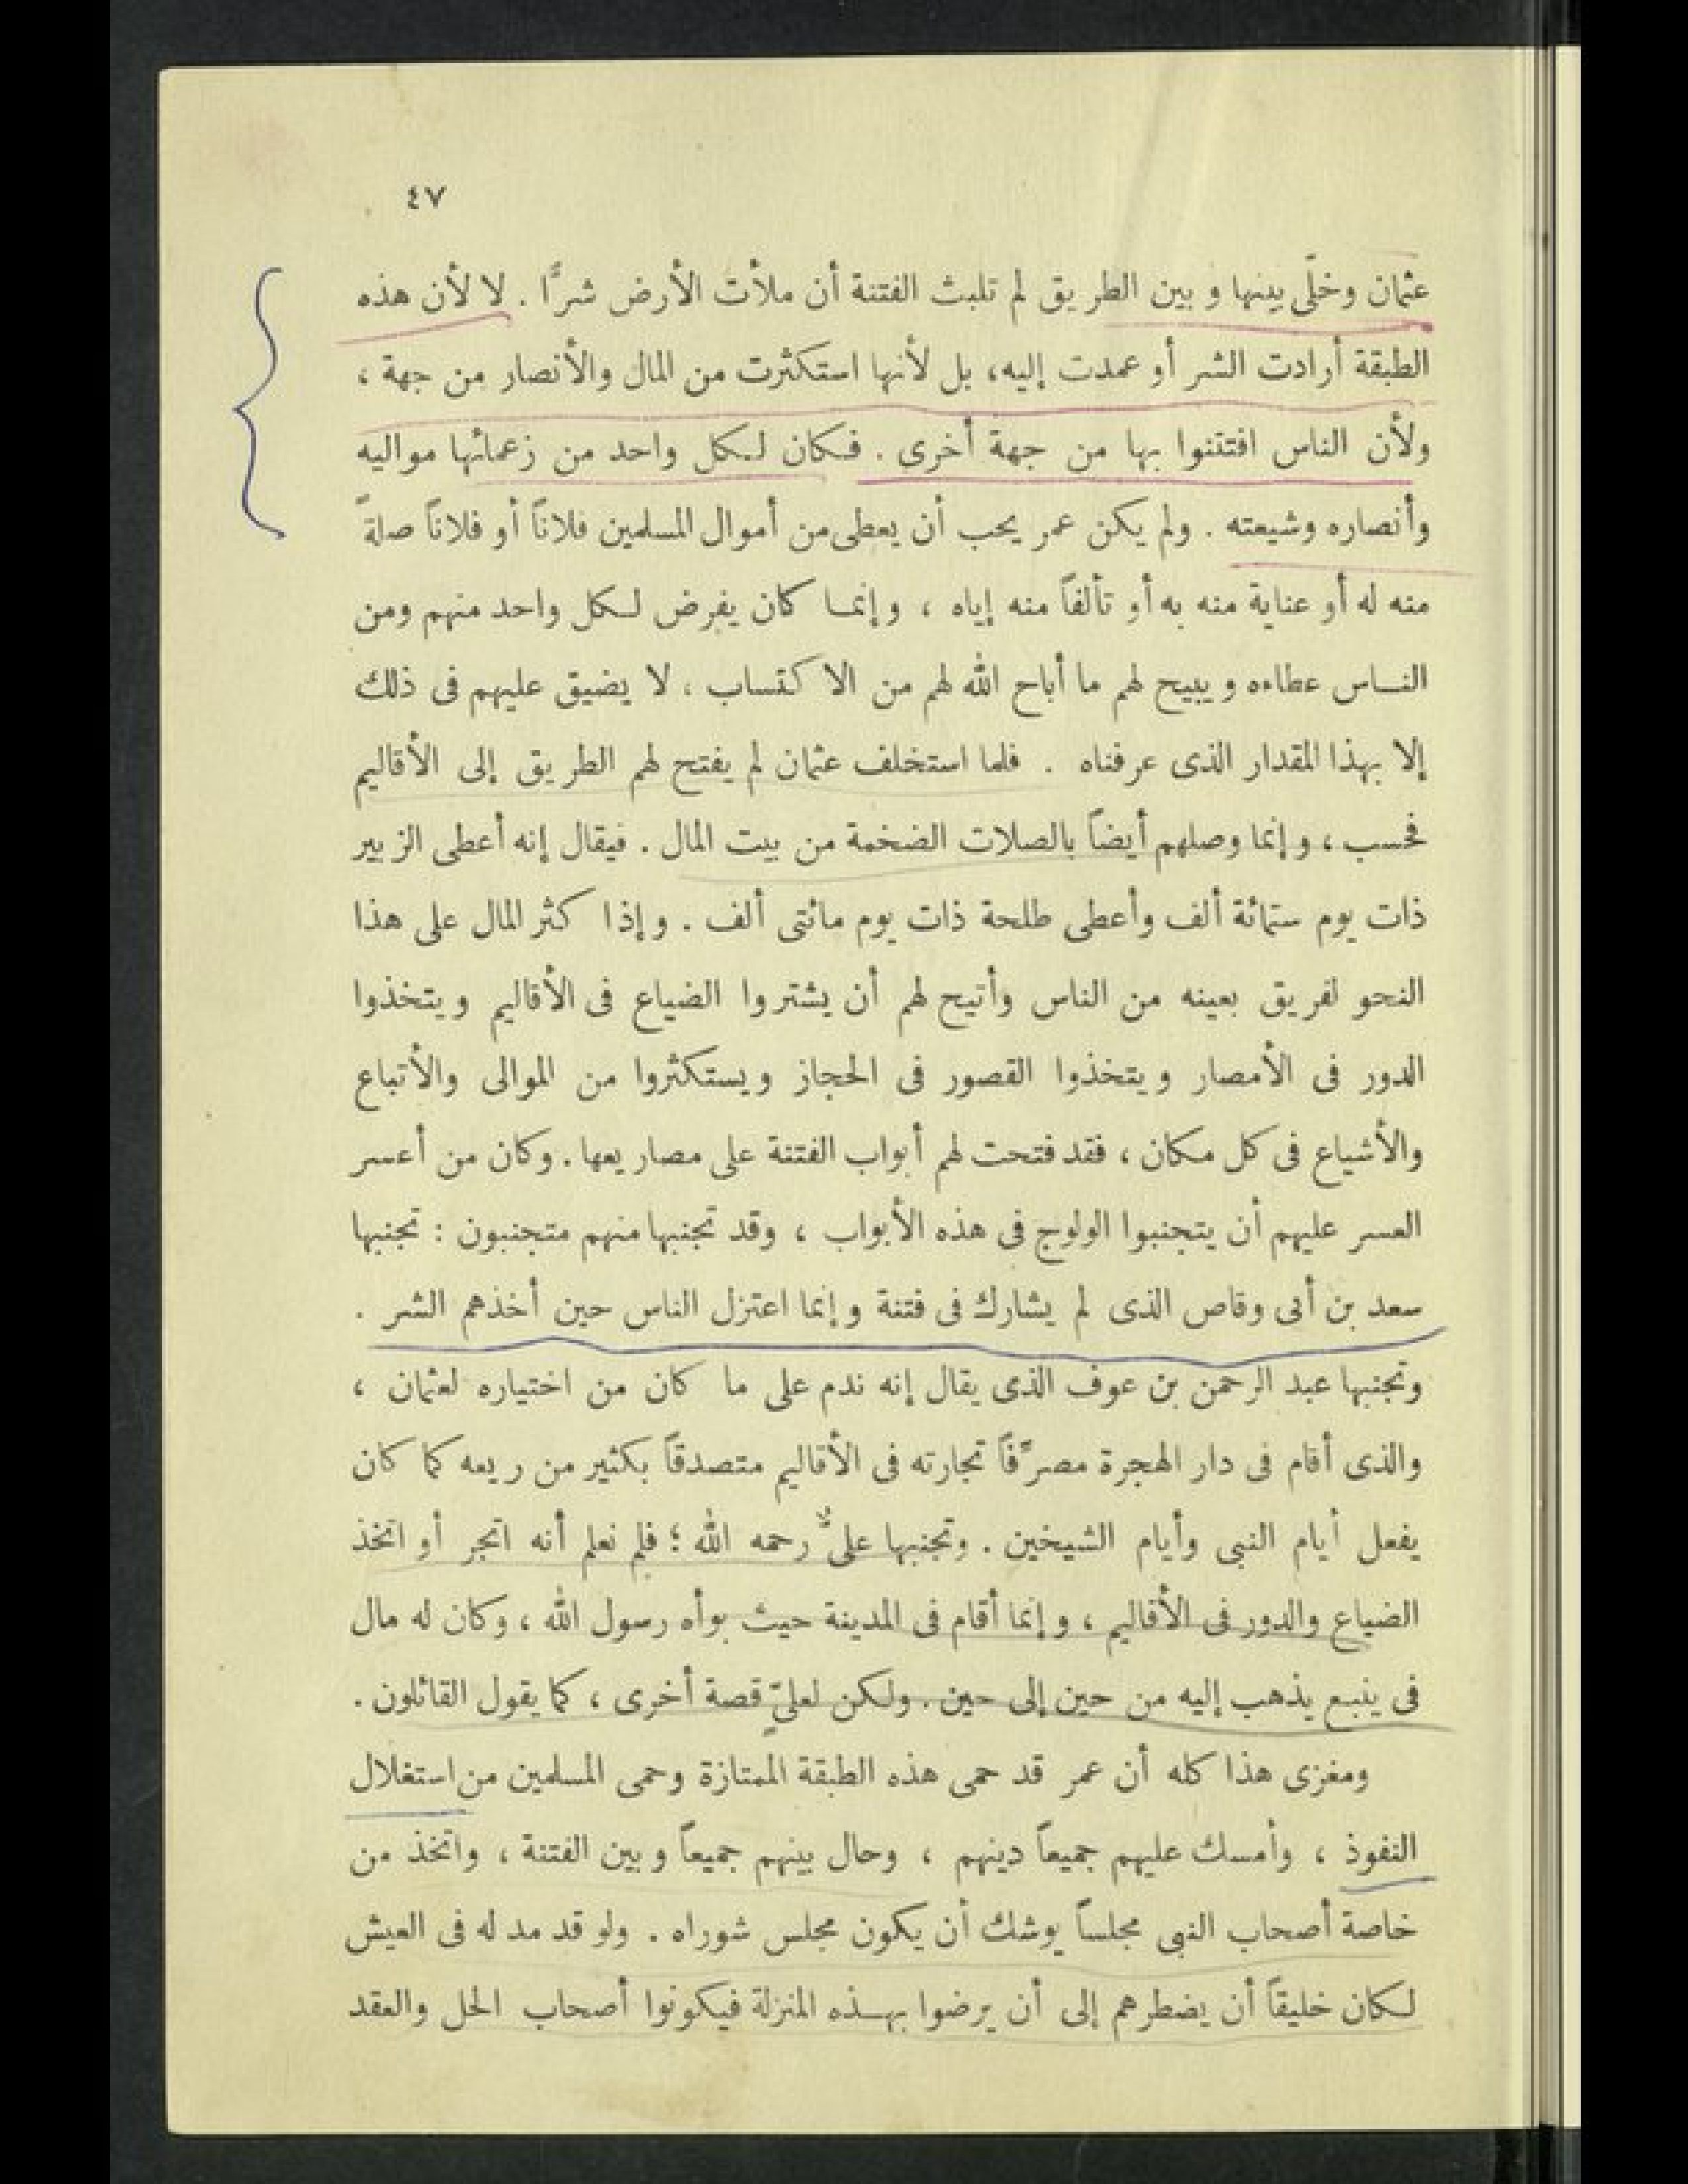 ٤٧
عثمان وخلّى بينها وبين الطريق لم تلبث الفتنة أن ملأت الأرض شرًّا . لا لأن هذه
الطبقة أرادت الشر أو عمدت إليه، بل لأنها استكثرت من المال والأنصار من جهة ،
ولأن الناس افتتنوا بها من جهة أخرى . فكان لكل واحد من زعمائها مواليه
وأنصاره وشيعته . ولم يكن عمر يحب أن يعطى من أموال المسلمين فلاناً أو فلاناً صلةً
منه له أو عناية منه به أو تألفاً منه إياه ، وإنما كان يفرض لكل واحد منهم ومن
الناس عطاءه ويبيح لهم ما أباح الله لهم من الاكتساب ، لا يضيق عليهم فى ذلك
إلا بهذا المقدار الذى عرفناه . فلما استخلف عثمان لم يفتح لهم الطريق إلى الأقاليم
فحسب ، وإنما وصلهم أيضاً بالصلات الضخمة من بيت المال . فيقال إنه أعطى الزبير
ذات يوم ستمائة ألف وأعطى طلحة ذات يوم مائتى ألف . وإذا كثر المال على هذا
النحو لفريق بعينه من الناس وأتيح لهم أن يشتروا الضياع فى الأقاليم ويتخذوا
الدور فى الأمصار ويتخذوا القصور فى الحجاز ويستكثروا من الموالى والأتباع
والأشياع فى كل مكان ، فقد فتحت لهم أبواب الفتنة على مصاريعها . وكان من أعسر
العسر عليهم أن يتجنبوا الولوج فى هذه الأبواب ، وقد تجنبها منهم متجنبون : تجنبها
سعد بن أبى وقاص الذى لم يشارك فى فتنة وإنما اعتزل الناس حين أخذهم الشر .
وتجنبها عبد الرحمن بن عوف الذى يقال إنه ندم على ما كان من اختياره لعثمان ،
والذى أقام فى دار الهجرة مصرِّفاً تجارته فى الأقاليم متصدقاً بكثير من ريعه كما كان
يفعل أيام النبى وأيام الشيخين . وتجنبها علىٌّ رحمه الله ؛ فلم نعلم أنه اتجر أو اتخذ
الضياع والدور فى الأقاليم ، وإنما أقام فى المدينة حيث بوأه رسول الله ، وكان له مال
فى ينبع يذهب إليه من حين إلى حين . ولكن لعلىٍّ قصة أخرى ، كما يقول القائلون .
ومغزى هذا كله أن عمر قد حمى هذه الطبقة الممتازة وحمى المسلمين من استغلال
النفوذ ، وأمسك عليهم جميعاً دينهم ، وحال بينهم جميعاً وبين الفتنة ، واتخذ من
خاصة أصحاب النبى مجلساً يوشك أن يكون مجلس شوراه . ولو قد مد له فى العيش
لكان خليقاً أن يضطرهم إلى أن يرضوا بهذه المنزلة فيكونوا أصحاب الحل والعقد